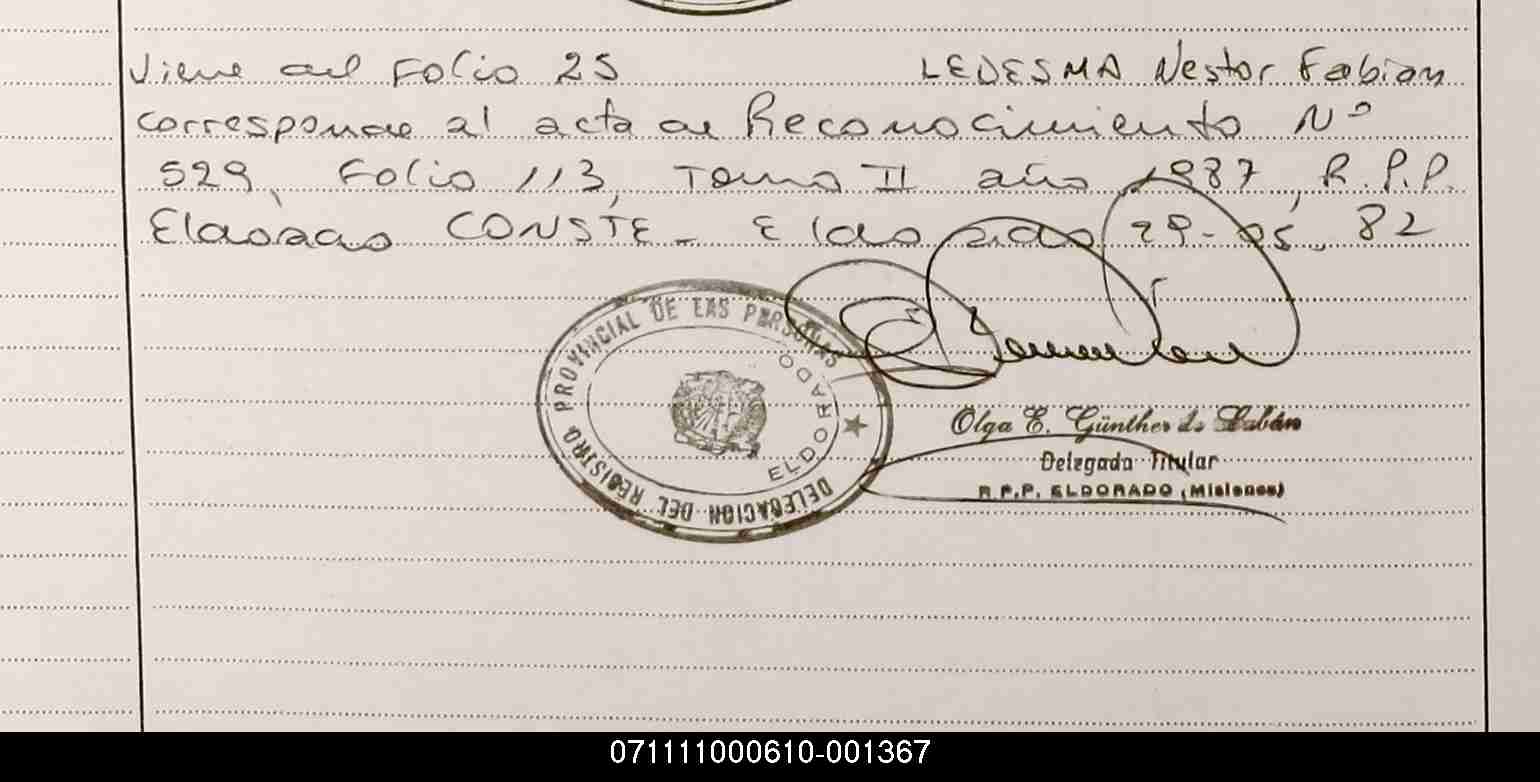 Viene del Folio 25 LEDESMA Nestor Fabian
corresponde al acta de Reconocimiento Nº
529, Folio 113, Tomo II año 1987, R.P.P.
Eldorado CONSTE - Eldorado 29-05-82
DELEGACION DEL REGISTRO PROVINCIAL DE LAS PERSONAS
ELDORADO
Olga E. Günther de
Delegada Titular
R.P.P. ELDORADO (Misiones)
071111000610-001367